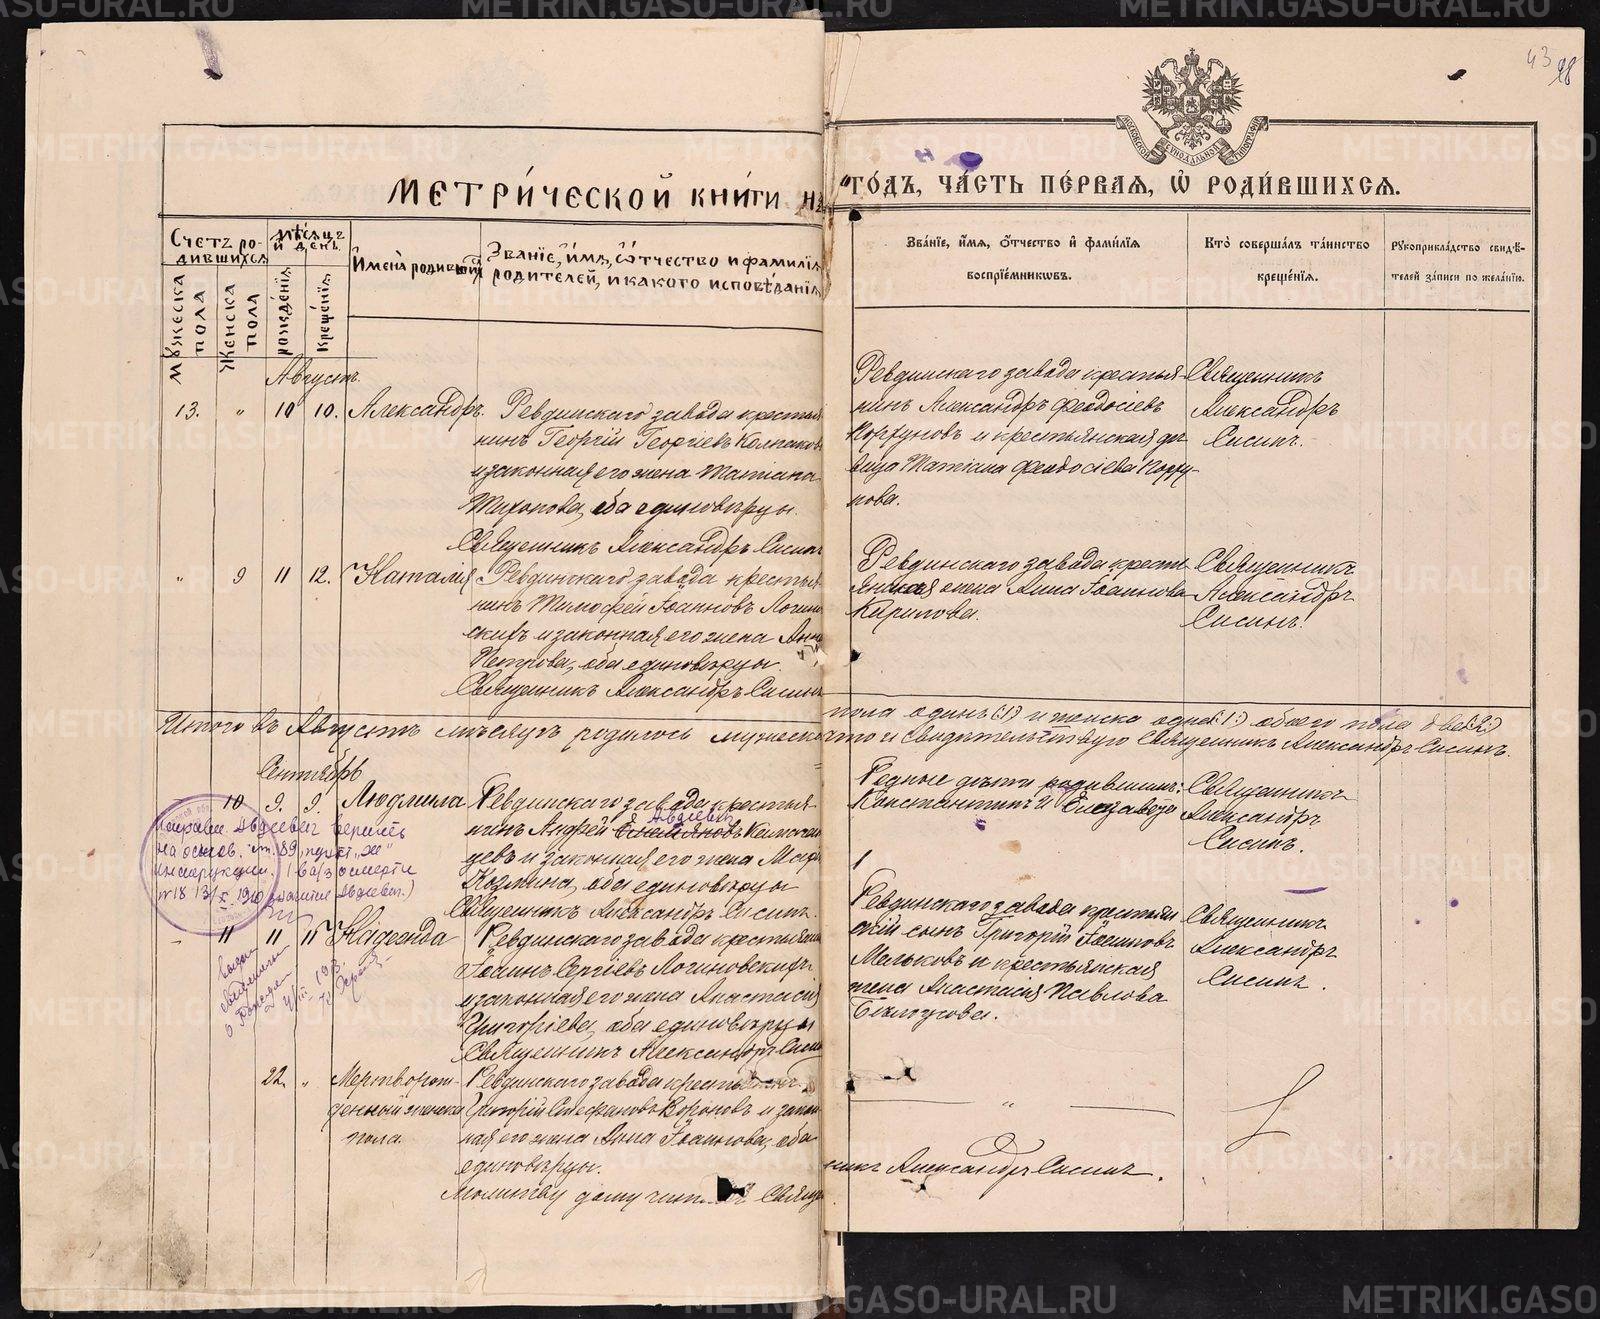 43
28
МОСКОВСКОЙ СѴНОДАЛЬНОЙ ТИПОГРАФІИ
МЕТРИ́ЧЕСКОЙ КНИ́ГИ НА
ГО́ДЪ, ЧА́СТЬ ПЕ́РВАЯ, Ѡ РОДИ́ВШИХСЯ.
Счетъ ро-
дившихся
Мужеска пола
Женска пола
Мѣсяцъ
и день
рожденія
крещенія
Имена родившихся
Званіе, имя, отчество и фамилія
родителей, и какого исповѣданія
Зва́нїе, и҆́мѧ, ѻ҆́тчество и҆ фами́лїѧ
воспрїе́мникѡвъ.
Кто̀ соверша́лъ та́инство
креще́нїѧ.
Рꙋкоприкла́дство свидѣ́-
телей за́писи по жела́нїю.
Августъ
13. " 10 10. Александръ.
Ревдинскаго завода крестья
нинъ Георгій Георгіевъ Колпаковъ
и законная его жена Татиана
Тихонова, оба единовѣрцы.
Священникъ Александръ Сисинъ
Ревдинскаго завода крестья-
нинъ Александръ Феодосіевъ
Коргуновъ и крестьянская дѣ
вица Татіана Феодосіева Коргу-
нова.
Священникъ
Александръ
Сисинъ.
" 9 11 12. Наталія
Ревдинскаго завода крестья
нинъ Тимофей Іоанновъ Логинов
скихъ и законная его жена Анна
Петрова, оба единовѣрцы.
Священникъ Александръ Сисинъ
Ревдинскаго завода кресть
янская жена Анна Іоаннова
Кирилова.
Священникъ
Александръ
Сисинъ.
Итого въ Августѣ мѣсяцѣ родилось мужеска
пола одинъ (:1:) и женска одна (:1:) обоего пола двѣ (:2:)
что и свидѣтельствую Священникъ Александръ Сисинъ.
Сентябрь
10 9. 9. Людмила
Ревдинскаго завода крестья
Авдіевъ
нинъ Андрей
и законная его жена
Козмина, оба единовѣрцы
Священникъ Александръ Сисинъ.
Родные дѣти родившихъ:
Константинъ и Елизавета
Священникъ
Александръ
Сисинъ.
верить
на основ. ст. 89, пункт "ж"
инструкции.
11 11 11 Надежда
Ревдинскаго завода крестьянинъ
Іоаннъ Сергіевъ Логиновскихъ
и законная его жена Анастасія
Григоріева, оба единовѣрцы
Священникъ Александръ Сисинъ
Ревдинскаго завода крестьян
скій сынъ Григорій Іоанновъ
Мальковъ и крестьянская
жена Анастасія Павлова
Бѣлоусова.
Священникъ
Александръ
Сисинъ.
22. " Мертворож-
денный женска
пола.
Ревдинскаго завода
Григорій Стефановъ Вороновъ и закон
ная его жена Анна Іоаннова, оба
единовѣрцы.
Молитву дому читалъ Священ
никъ Александръ Сисинъ.
METRIKI.GASO-URAL.RU